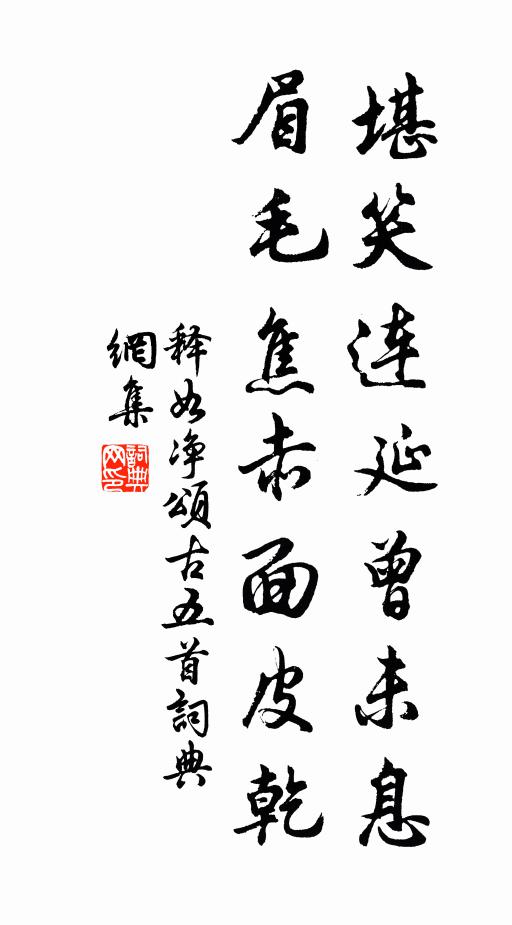 堪笑连延曾未息
眉毛焦赤面皮乾
释如净頌古五首詞典
網集
詞典
网印